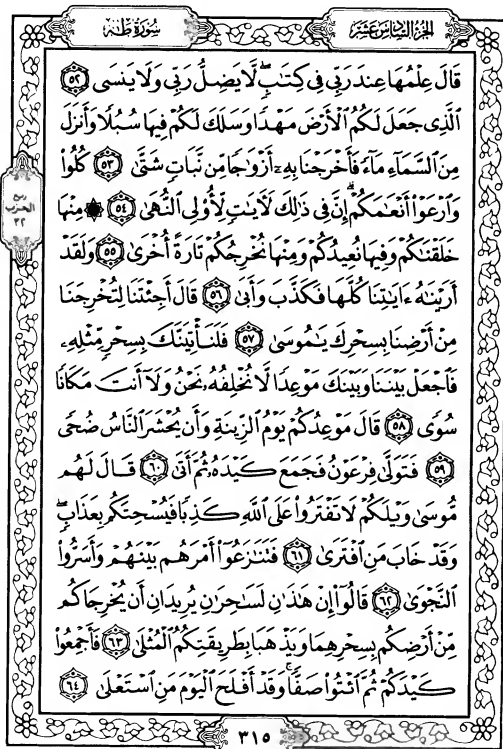 الجزء السادس عشر
سورة طه
قَالَ عِلْمُهَا عِندَ رَبِّى فِى كِتَـٰبٍ ۖ لَّا يَضِلُّ رَبِّى وَلَا يَنسَى ٥٢
ٱلَّذِى جَعَلَ لَكُمُ ٱلْأَرْضَ مَهْدًا وَسَلَكَ لَكُمْ فِيهَا سُبُلًا وَأَنزَلَ
مِنَ ٱلسَّمَآءِ مَآءً فَأَخْرَجْنَا بِهِۦٓ أَزْوَٰجًا مِّن نَّبَاتٍ شَتَّىٰ ٥٣ كُلُوا۟
وَٱرْعَوْا۟ أَنْعَـٰمَكُمْ ۗ إِنَّ فِى ذَٰلِكَ لَـَٔايَـٰتٍ لِّأُو۟لِى ٱلنُّهَىٰ ٥٤ ۞ مِنْهَا
خَلَقْنَـٰكُمْ وَفِيهَا نُعِيدُكُمْ وَمِنْهَا نُخْرِجُكُمْ تَارَةً أُخْرَىٰ ٥٥ وَلَقَدْ
أَرَيْنَـٰهُ ءَايَـٰتِنَا كُلَّهَا فَكَذَّبَ وَأَبَىٰ ٥٦ قَالَ أَجِئْتَنَا لِتُخْرِجَنَا
مِنْ أَرْضِنَا بِسِحْرِكَ يَـٰمُوسَىٰ ٥٧ فَلَنَأْتِيَنَّكَ بِسِحْرٍ مِّثْلِهِۦ
فَٱجْعَلْ بَيْنَنَا وَبَيْنَكَ مَوْعِدًا لَّا نُخْلِفُهُۥ نَحْنُ وَلَآ أَنتَ مَكَانًا
سُوًى ٥٨ قَالَ مَوْعِدُكُمْ يَوْمُ ٱلزِّينَةِ وَأَن يُحْشَرَ ٱلنَّاسُ ضُحًى
٥٩ فَتَوَلَّىٰ فِرْعَوْنُ فَجَمَعَ كَيْدَهُۥ ثُمَّ أَتَىٰ ٦٠ قَالَ لَهُم
مُّوسَىٰ وَيْلَكُمْ لَا تَفْتَرُوا۟ عَلَى ٱللَّهِ كَذِبًا فَيُسْحِتَكُم بِعَذَابٍ ۖ
وَقَدْ خَابَ مَنِ ٱفْتَرَىٰ ٦١ فَتَنَـٰزَعُوٓا۟ أَمْرَهُم بَيْنَهُمْ وَأَسَرُّوا۟
ٱلنَّجْوَىٰ ٦٢ قَالُوٓا۟ إِنْ هَـٰذَٰنِ لَسَـٰحِرَٰنِ يُرِيدَانِ أَن يُخْرِجَاكُم
مِّنْ أَرْضِكُم بِسِحْرِهِمَا وَيَذْهَبَا بِطَرِيقَتِكُمُ ٱلْمُثْلَىٰ ٦٣ فَأَجْمِعُوا۟
كَيْدَكُمْ ثُمَّ ٱئْتُوا۟ صَفًّا ۚ وَقَدْ أَفْلَحَ ٱلْيَوْمَ مَنِ ٱسْتَعْلَىٰ ٦٤
ربع
الحزب
٣٢
٣١٥